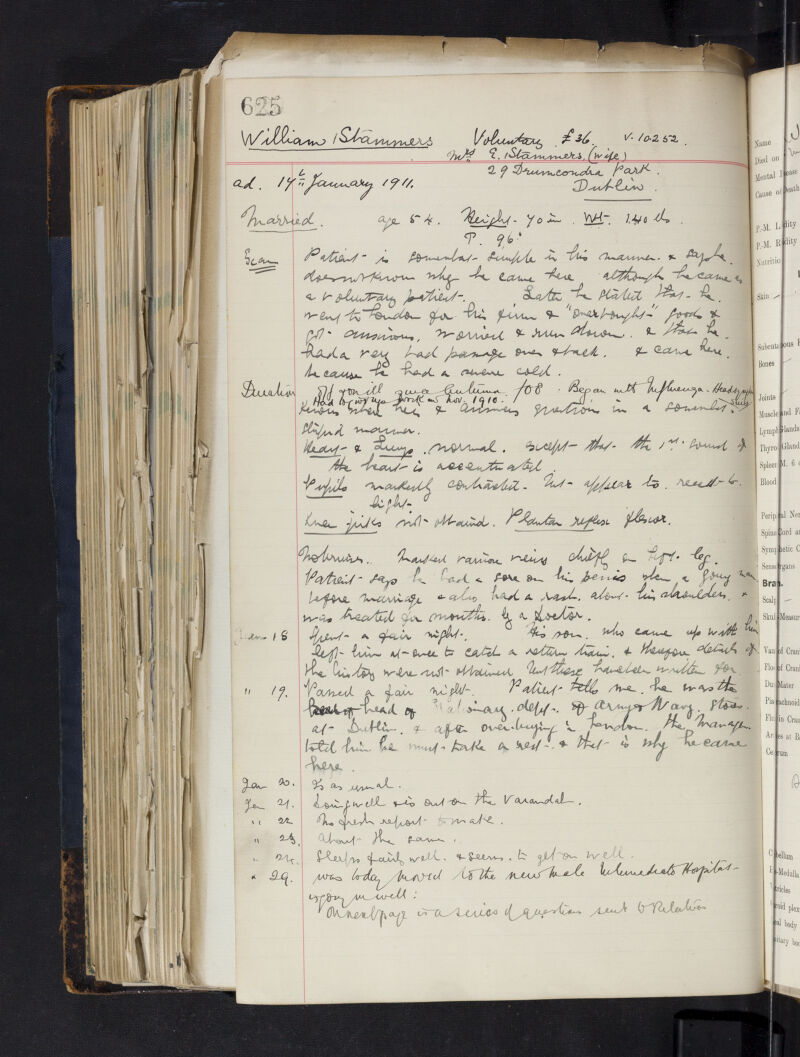 625
William Stammers Voluntary £36. V. 10252.
Mrs E. Stammers (wife)
29 Drumcondra Park.
ad. 17th January 1911. Dublin.
Married. age 54. Height - 70 in. Wt. 140 lbs.
P. 96.
Exam Patient is somewhat simple in his manner & says he
does not know why he came here although he came as
a voluntary patient. Later he stated that he
went to London for his firm & "overbought" goods &
got anxious, worried & run down. & that he
had a very bad passage over & back. & came here
because he had a severe cold.
Duration ill Autumn /08. Began with Influenza - Head
Had to give up work in Nov. 1910.
& answers questions in a somewhat
stupid manner.
Heart & Lungs normal. except that the 1st sound of
the heart is accentuated
Pupils markedly contracted but appear to react to
light.
Knee jerks not obtained. Plantar reflex flexor.
No bruises. Marked varicose veins chiefly on left leg.
Patient says he had a sore on his penis when a young man
before marriage & also had a rash about his shoulders &
was treated for months by a Doctor.
18 Spent a fair night. His son who came up with him
left him at once to catch a return train. & therefore details of
the history were not obtained but these have been written for
" 19. Passed a fair night. Patient tells me he was the
head of Stationary dept. of Army & Navy Stores
at Dublin. & after over buying in London. the Manager
told him he must take a rest & that is why he came
here.
Jan 20. Is as usual.
Jan 21. Doing well & is out on the Varandah.
" 22 No fresh report to make.
" 23. About the same.
" 24. Sleeps fairly well. & seems to get on well.
" 29. was today moved to the new male Intermediate Hospital -
is going on well:
On next page is a series of questions sent to Relations
Name
Died on
Mental Disease
Cause of Death
Nutrition
Skin
Bones
Joints
Blood
Brain.
Scalp